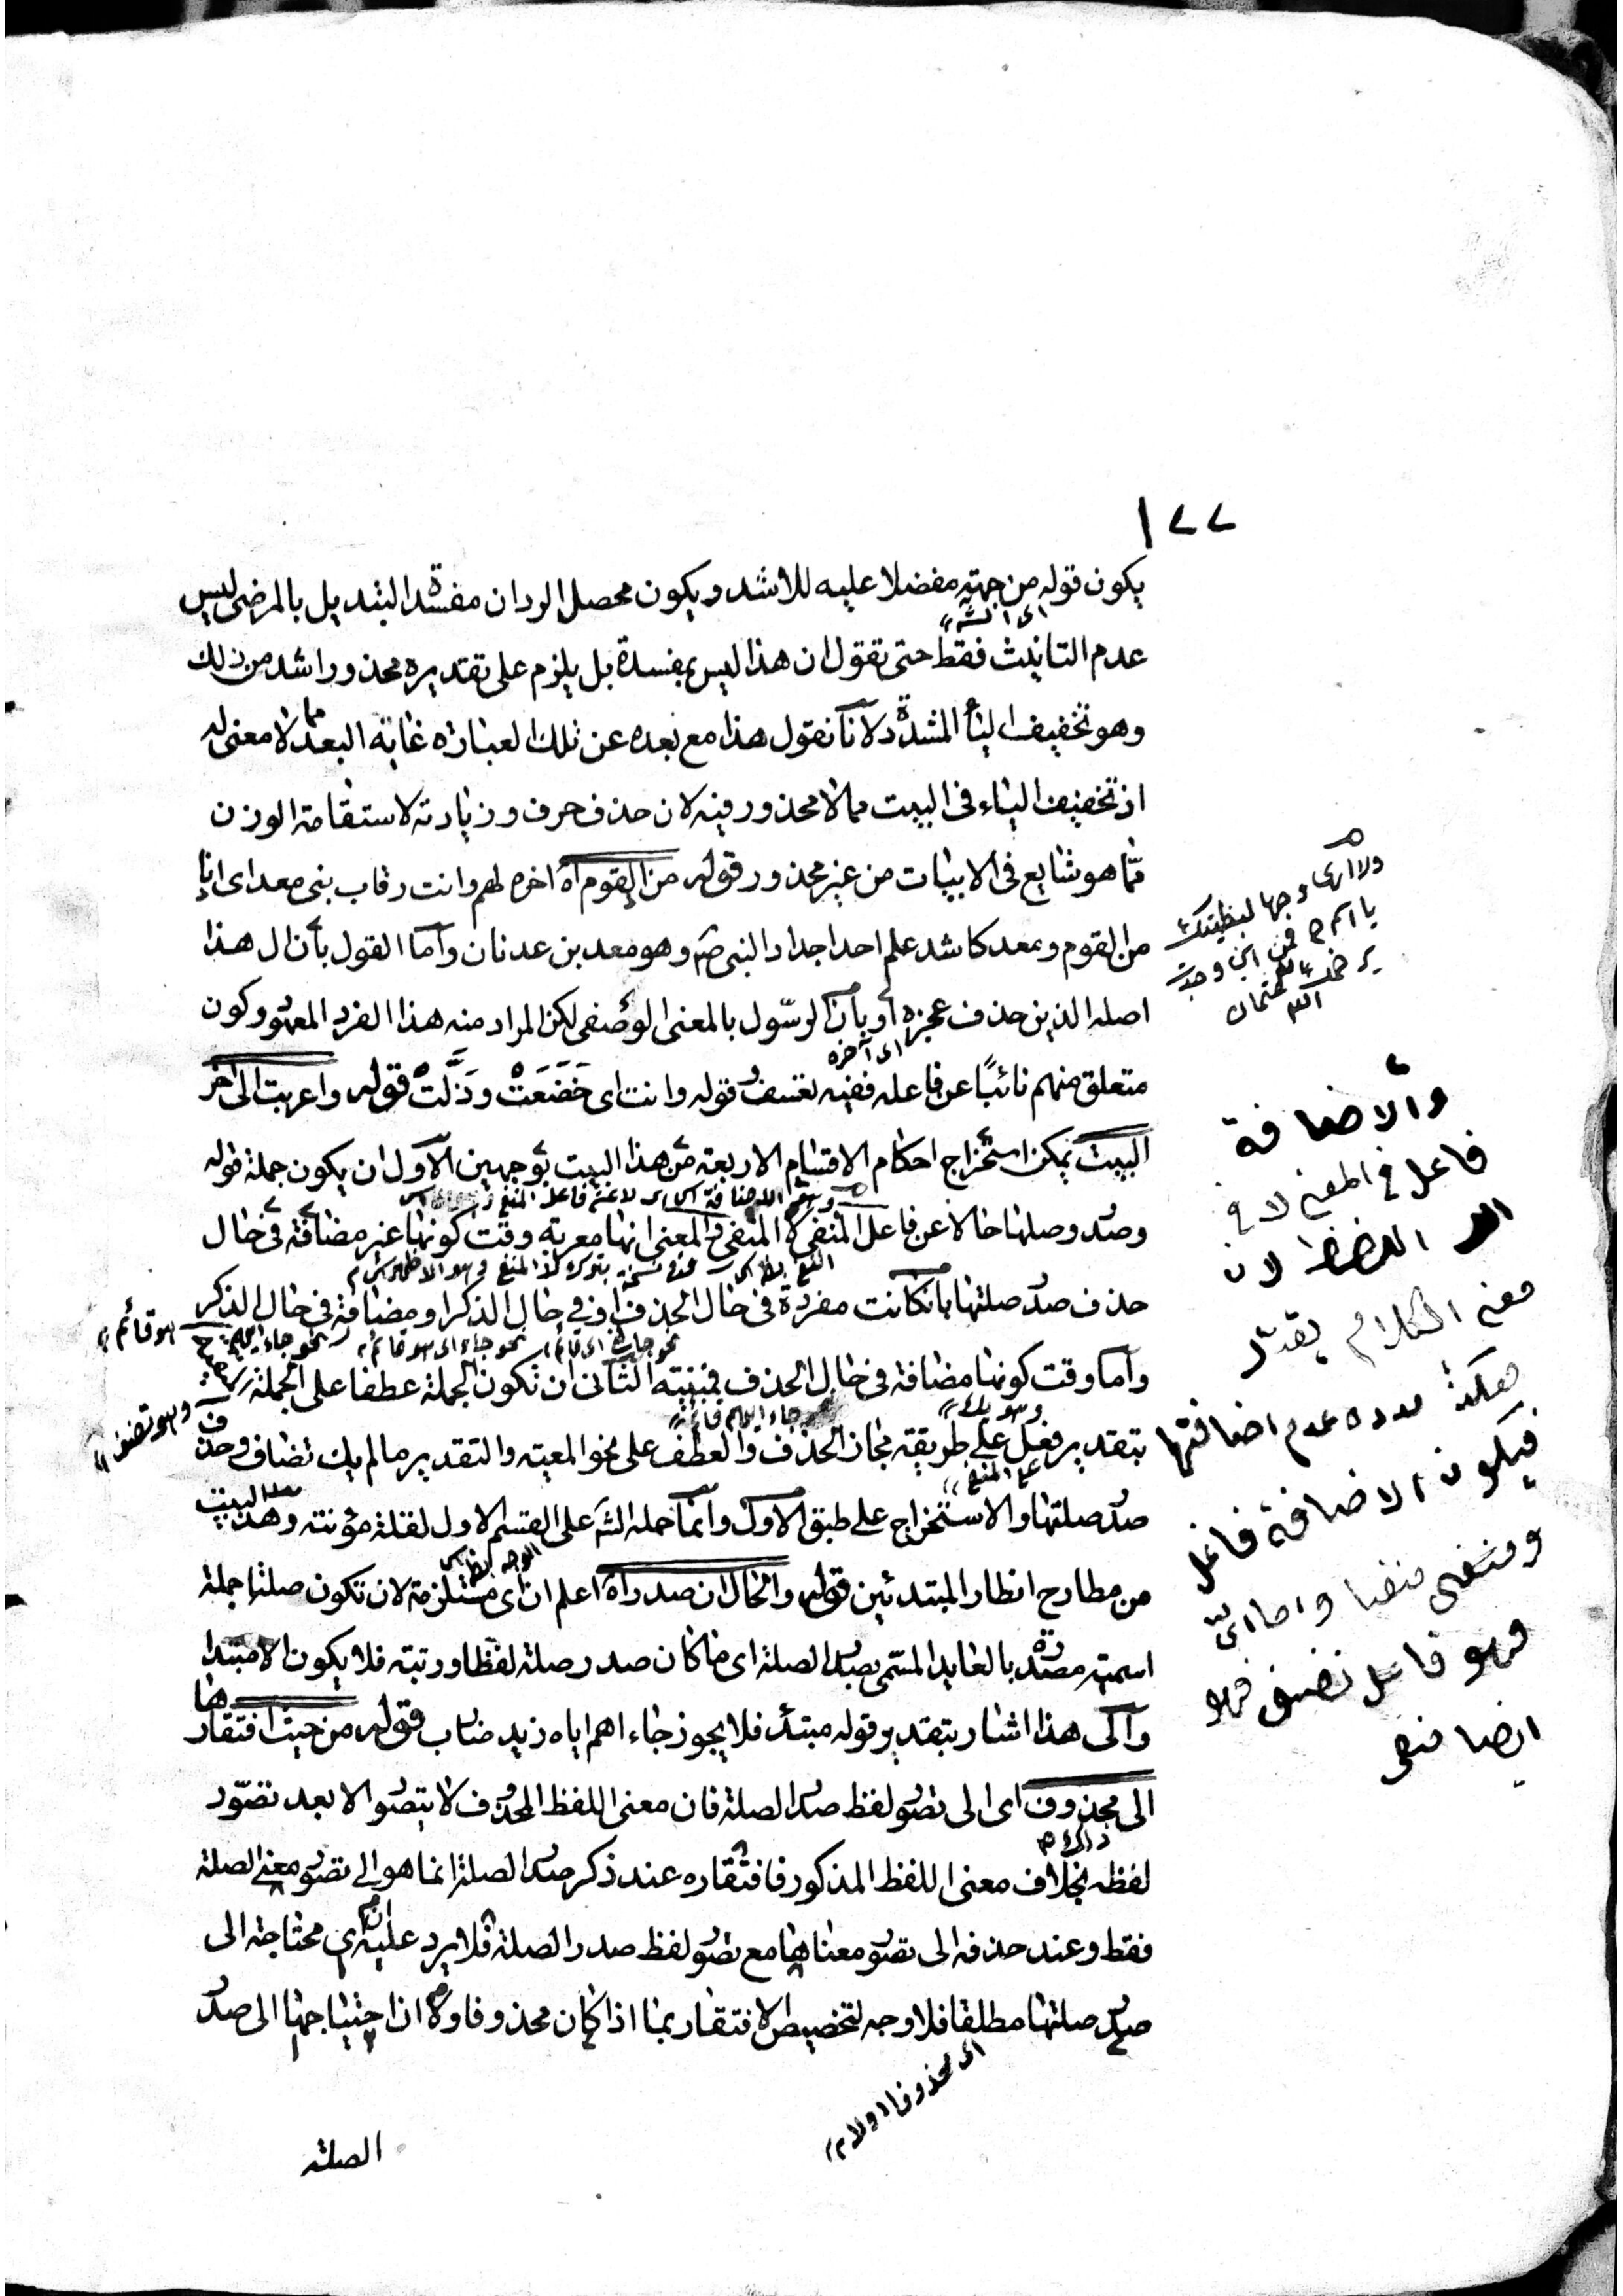 ١٧٧
يكون قوله من جهته مفضلا عليه للاشد ويكون محصل الرد ان مفسدة التبديل بالمرضى ليس
اى الشه
عدم التانيث فقط حتى تقول ان هذا ليس بمفسدة بل يلزم على تقديره محذور اشد من ذلك
وهو تخفيف الياء المشددة لانا نقول هذا مع بعده عن تلك العبارة غاية البعد مما لا معنى له
اذ تخفيف الياء فى البيت مما لا محذور فيه لان حذف حرف وزيادته لاستقامة الوزن
مما هو شايع فى الابيات من غير محذور قوله من القوم اه اخره لهم دانت رقاب بنى معد اى انا
من القوم ومعد كاشد علم احد اجداد النبى صم وهو معد بن عدنان واما القول بأن ال هذا
اصله الذين حذف عجزه او بان الرسول بالمعنى الوصفى لكن المراد منه هذا الفرد المعهود وكون
اى آخره
متعلق منهم نائبًا عن فاعله ففيه تعسف وقوله دانت اى خَضَعَتْ وذَلَّتْ قوله واعربت الى آخر
البيت يمكن استخراج احكام الاقسام الاربعة من هذا البيت بوجهين الاول ان يكون جملة قوله
وصدر وصلها حالا عن فاعل المنفى لا المنفى والمعنى انها معربة وقت كونها غير مضافة فى حال
حذف صدر صلتها بان كانت مفردة فى حال الحذف او فى حال الذكر او مضافة فى حال الذكر
هو قائم
واما وقت كونها مضافة فى حال الحذف فمبنية الثانى ان تكون الجملة عطفا على الجملة
وهو تضف
بتقدير فعل على طريقة مجاز الحذف والعطف على نحو المعية والتقدير مالم يك تضاف وحذف
على المنفى
صدر صلتها والاستخراج على طبق الاول وانما حمله الشه على القسم الاول لقلة مؤنته وهذا البيت
من مطارح انظار المبتدئين قوله والحال ان صدر اه اعلم ان اى مستلزمة لان تكون صلتها جملة
اسمية مصدرة بالعايد المسمى بصدر الصلة اى ما كان صدر صلة لفظا ورتبة فلا يكون الا مبتدا
والى هذا اشار بتقدير قوله مبتدأ فلا يجوز جاء ايهم اياه زيد ضارب قوله من حيث افتقارها
الى محذوف اى الى تصور لفظ صدر الصلة فان معنى اللفظ المحذوف لا يتصور الا بعد تصوّر
لفظه بخلاف معنى اللفظ المذكور فافتقاره عند ذكر صدر الصلة انما هو الى تصور معنى الصلة
فقط وعند حذفه الى تصور معناها مع تصور لفظ صدر الصلة فلا يرد عليه ان اى محتاجة الى
صدر صلتها مطلقا فلا وجه لتخصيص الافتقار بما اذا كان محذوفا ولا اذ احتياجها الى صدر
اى محذوفا اولا م
الصلة
والاضافة
فاعل فى المعنى لا فى
اللفظ لان
معنى الكلام يقدر
هكذا مدة عدم اضافتها
فيكون الاضافة فاعل
ومنفى منفيا واما اىّ
فهو فاعل تضف فهو
ايضا منفى